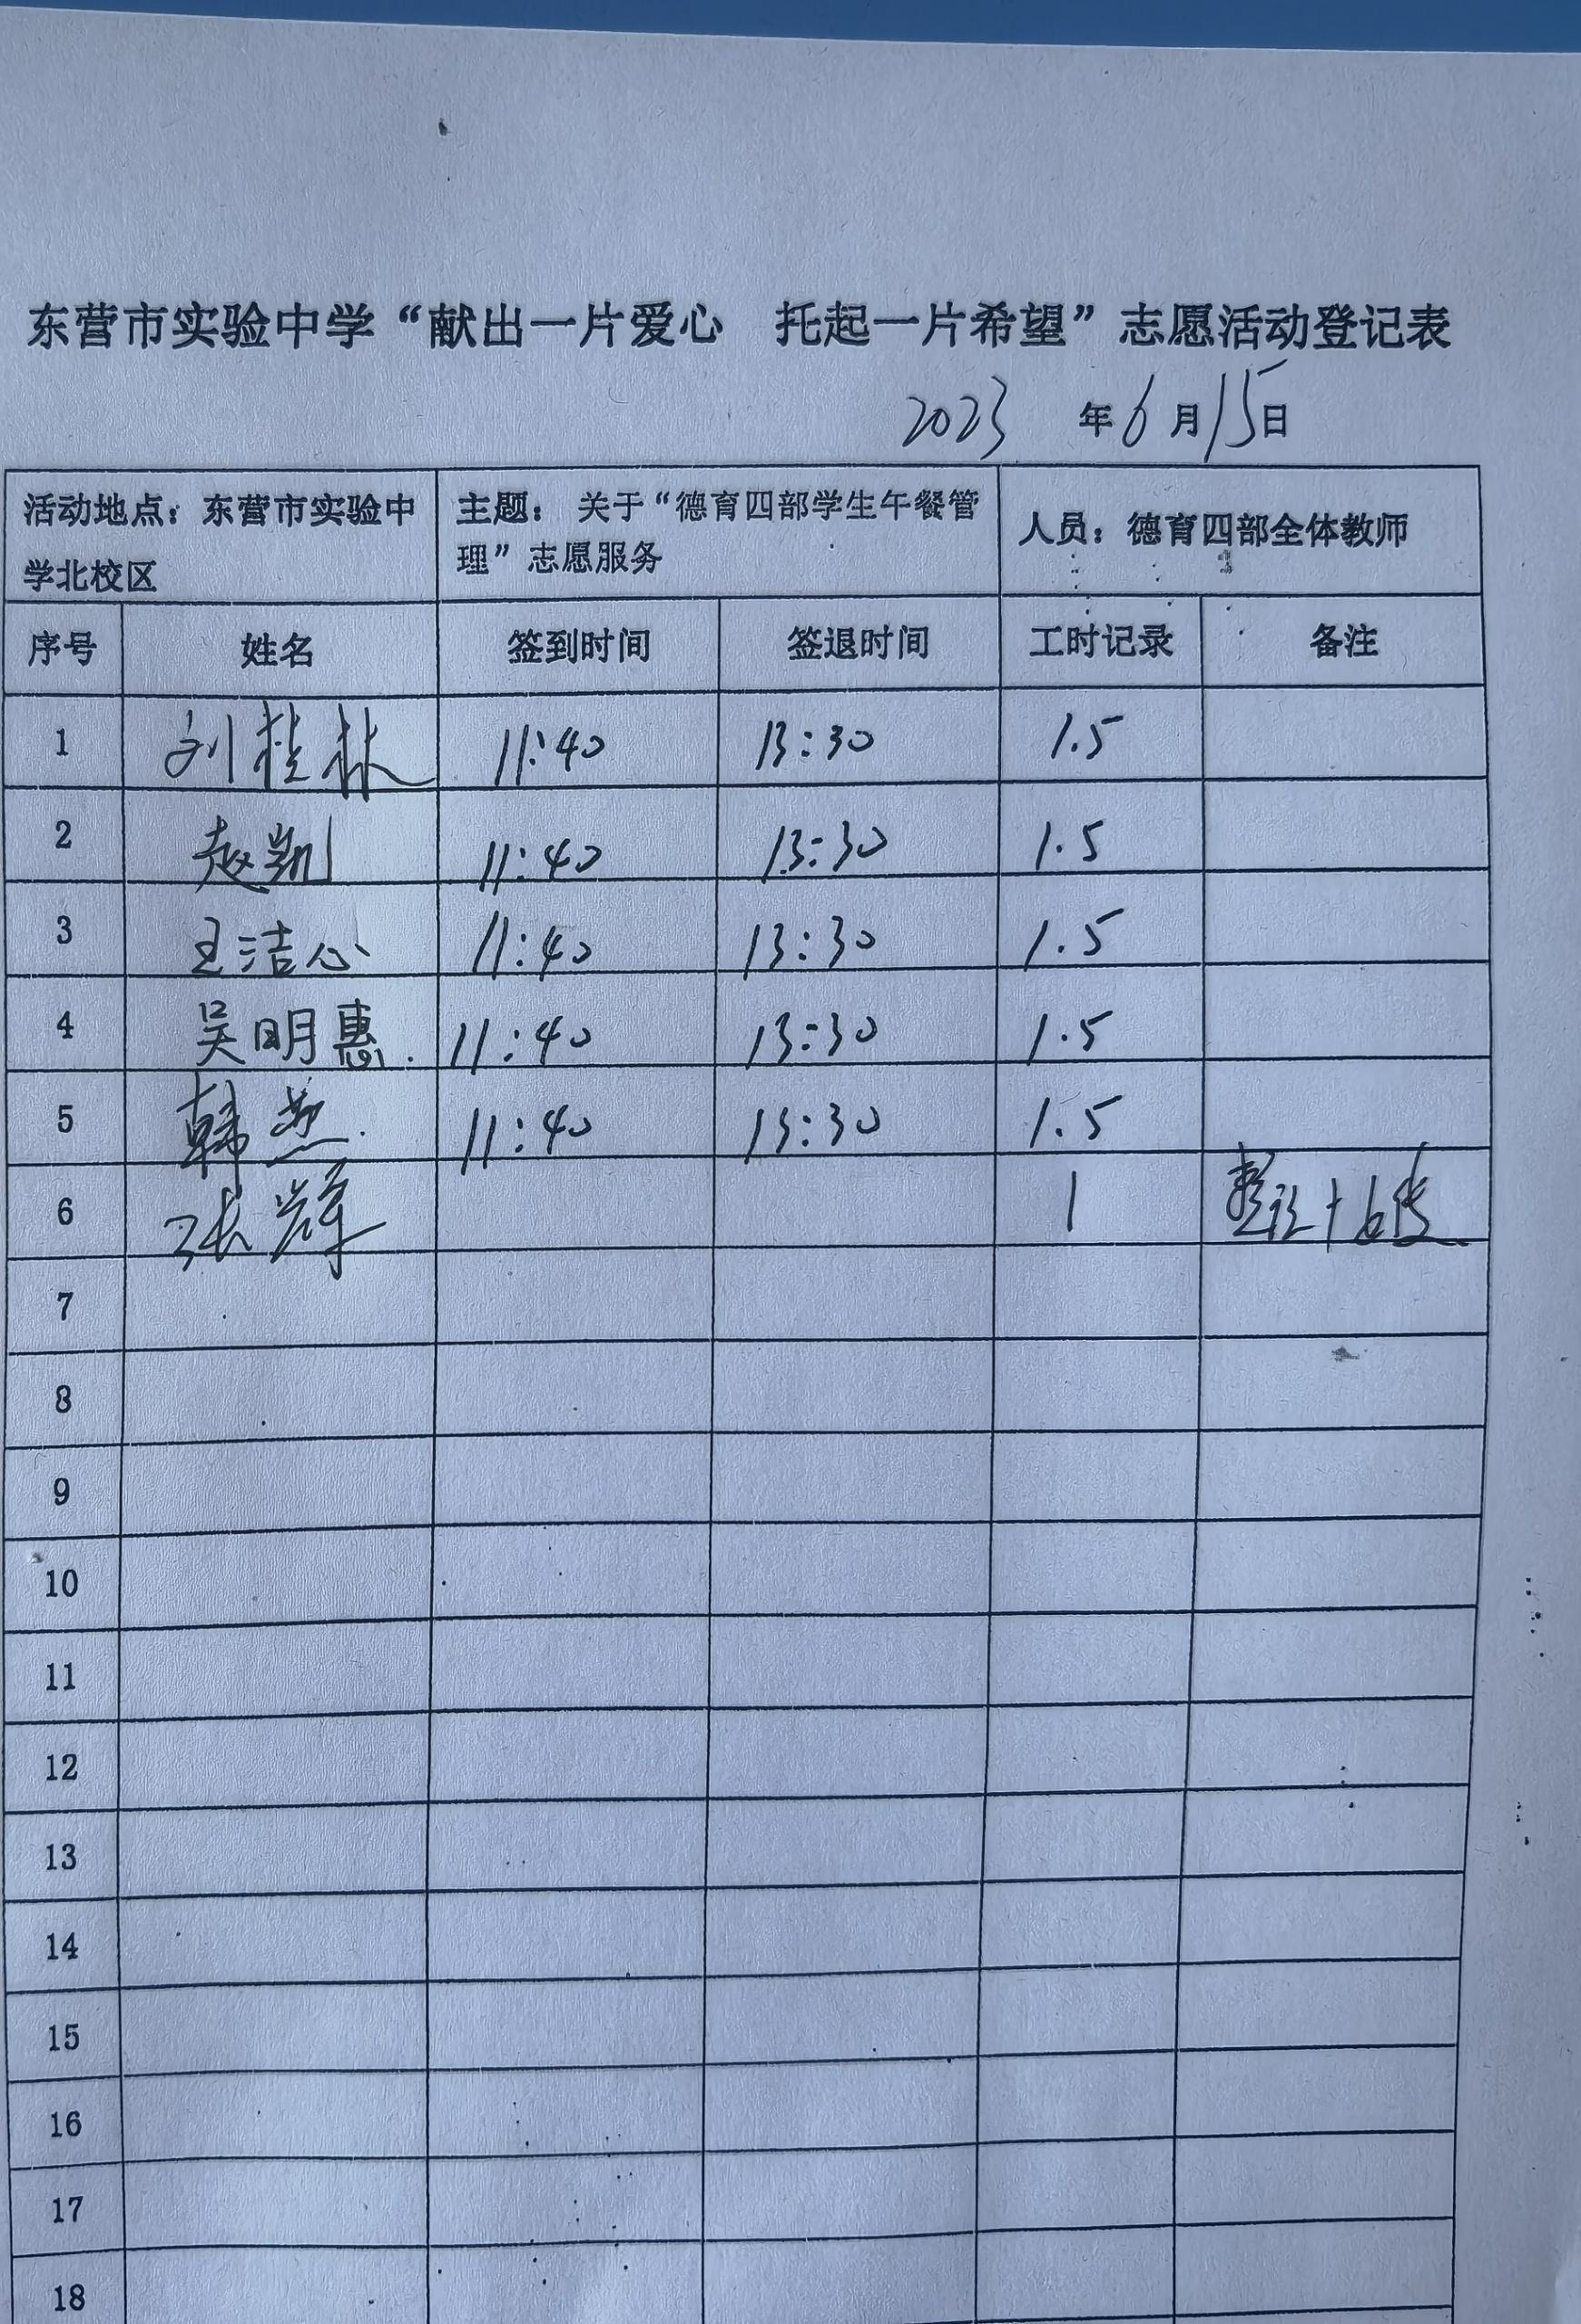 东营市实验中学“献出一片爱心 托起一片希望”志愿活动登记表
2023 年 6 月 15 日
活动地点：东营市实验中
学北校区
主题： 关于“德育四部学生午餐管
理”志愿服务
人员：德育四部全体教师
序号 姓名 签到时间 签退时间 工时记录 备注
1 刘桂林 11:40 13:30 1.5
2 赵凯 11:40 13:30 1.5
3 王洁心 11:40 13:30 1.5
4 吴明惠 11:40 13:30 1.5
5 韩燕 11:40 13:30 1.5
6 张辉 1
7
8
9
10
11
12
13
14
15
16
17
18